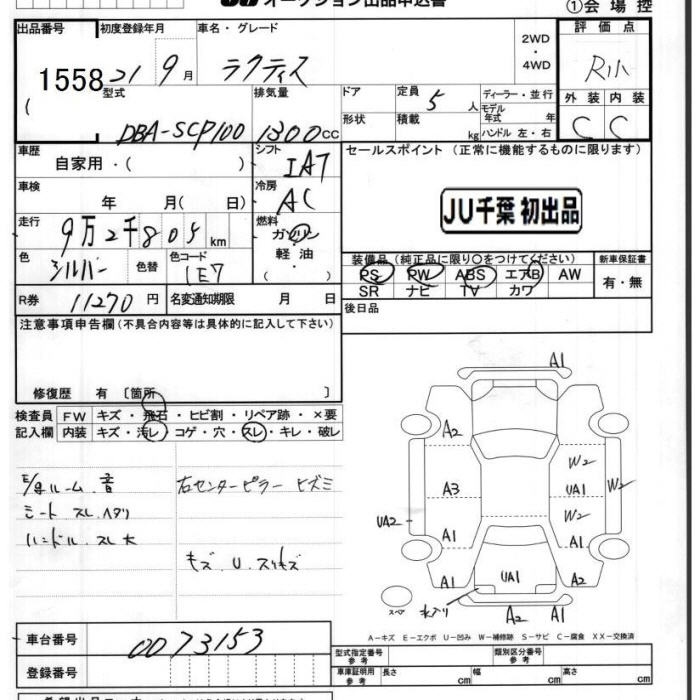 オークション出品申込書
①会場控
出品番号 初度登録年月 車名・グレード 2WD・4WD 評価点
1558 21 9月 ラクティス R小
型式 排気量 ドア 定員 5人 ディーラー・並行 外装 内装
モデル年式 年
DBA-SCP100 1300cc 形状 積載 kg ハンドル 左・右 C C
車歴 自家用・( ) シフト IAT セールスポイント (正常に機能するものに限ります)
車検 年 月( 日) 冷房 AC
JU千葉 初出品
走行 9万2千805km 燃料 ガソリン・軽油・( )
色 シルバー 色替 色コード 1E7
装備品 (純正品に限り○をつけてください) 新車保証書
PS PW ABS エアB AW 有・無
SR ナビ TV カワ
R券 11270円 名変通知期限 月 日 後日品
注意事項申告欄(不具合内容等は具体的に記入して下さい)
修復歴 有 [箇所 ]
検査員 FW キズ・飛石・ヒビ割・リペア跡・×要
記入欄 内装 キズ・汚レ・コゲ・穴・スレ・キレ・破レ
E/gルーム 音 右センターピラー ヒズミ
シート スレ ヘタリ
ハンドル スレ大
キズ U スリキズ
A1
A2 W2
A3 UA1 W2
UA2 W2
A1 A1
A1 UA1 A2
スペア A2 A1
A-キズ E-エクボ U-凹み W-補修跡 S-サビ C-腐食 XX-交換済
車台番号 0073153
型式指定番号 参考 類別区分番号 参考
登録番号 車庫証明用 参考 長さ cm 幅 cm 高さ cm